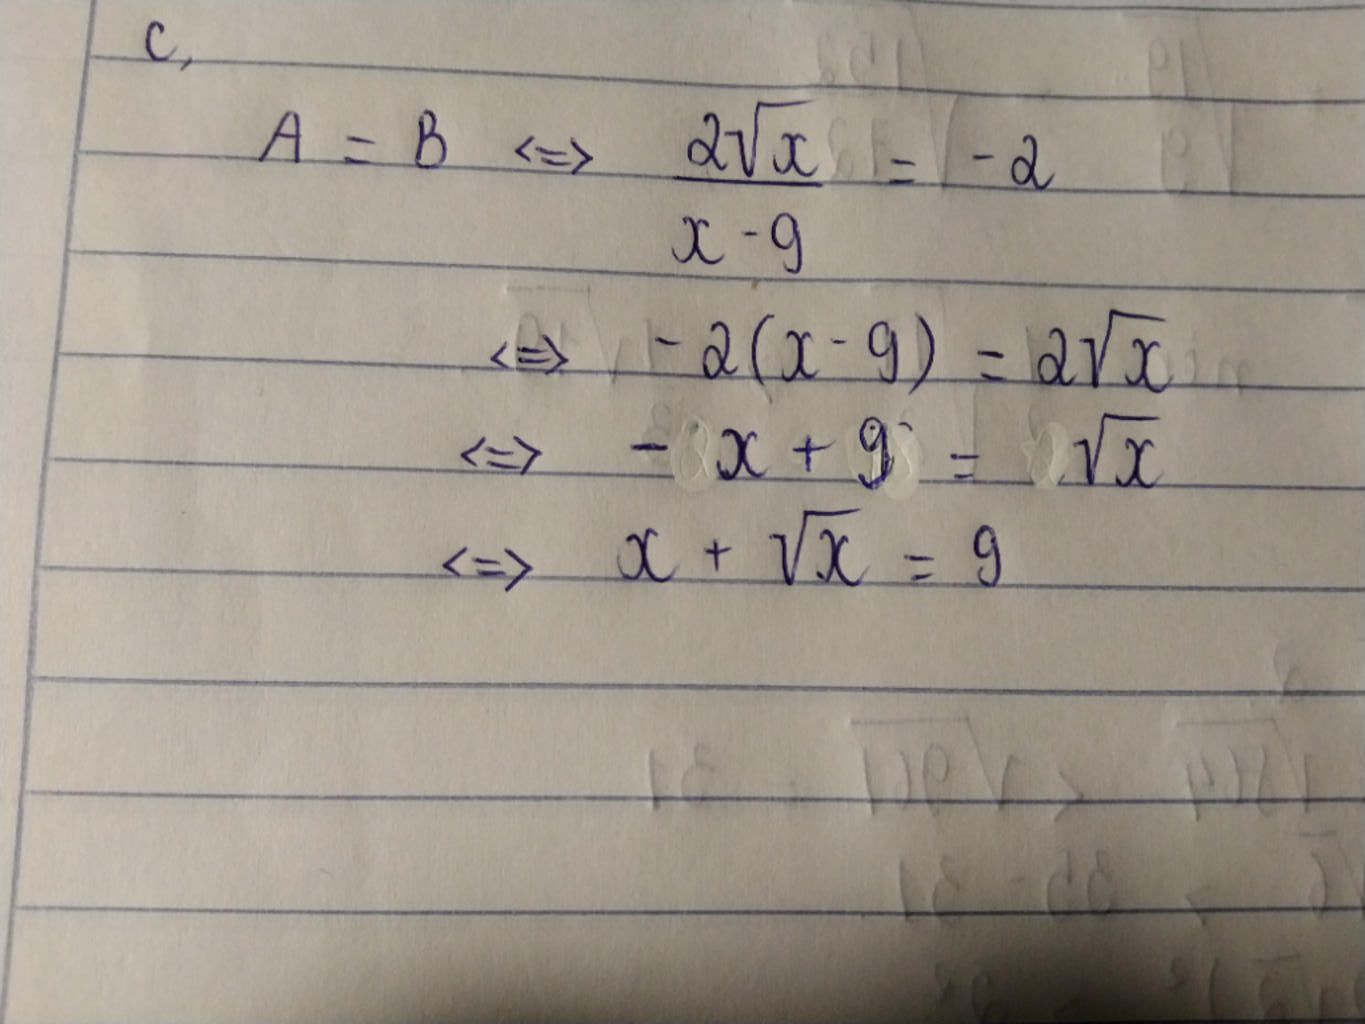 c,
A = B <=> 2√x / x - 9 = -2
<=> -2(x - 9) = 2√x
<=> - x + 9 = √x
<=> x + √x = 9